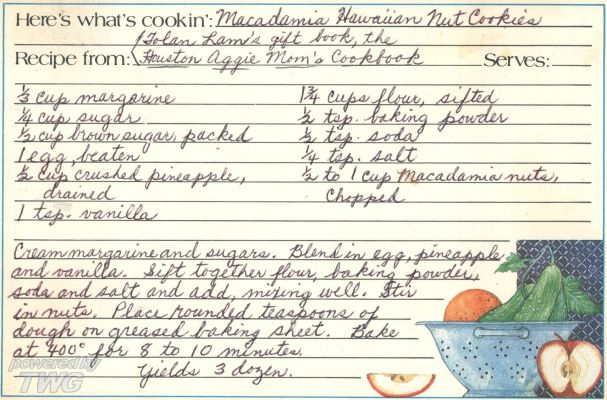 Here's what's cookin': Macadamia Hawaiian Nut Cookies
Tolan Lam's gift book, the
Recipe from: Houston Aggie Mom's Cookbook Serves:
⅓ cup margarine
¼ cup sugar
½ cup brown sugar, packed
1 egg, beaten
½ cup crushed pineapple,
drained
1 tsp. vanilla
1¾ cups flour, sifted
½ tsp. baking powder
½ tsp. soda
¼ tsp. salt
½ to 1 cup Macadamia nuts,
chopped
Cream margarine and sugars. Blend in egg, pineapple
and vanilla. Sift together flour, baking powder,
soda and salt and add, mixing well. Stir
in nuts. Place rounded teaspoons of
dough on greased baking sheet. Bake
at 400° for 8 to 10 minutes.
Yields 3 dozen.
powered by
TWG